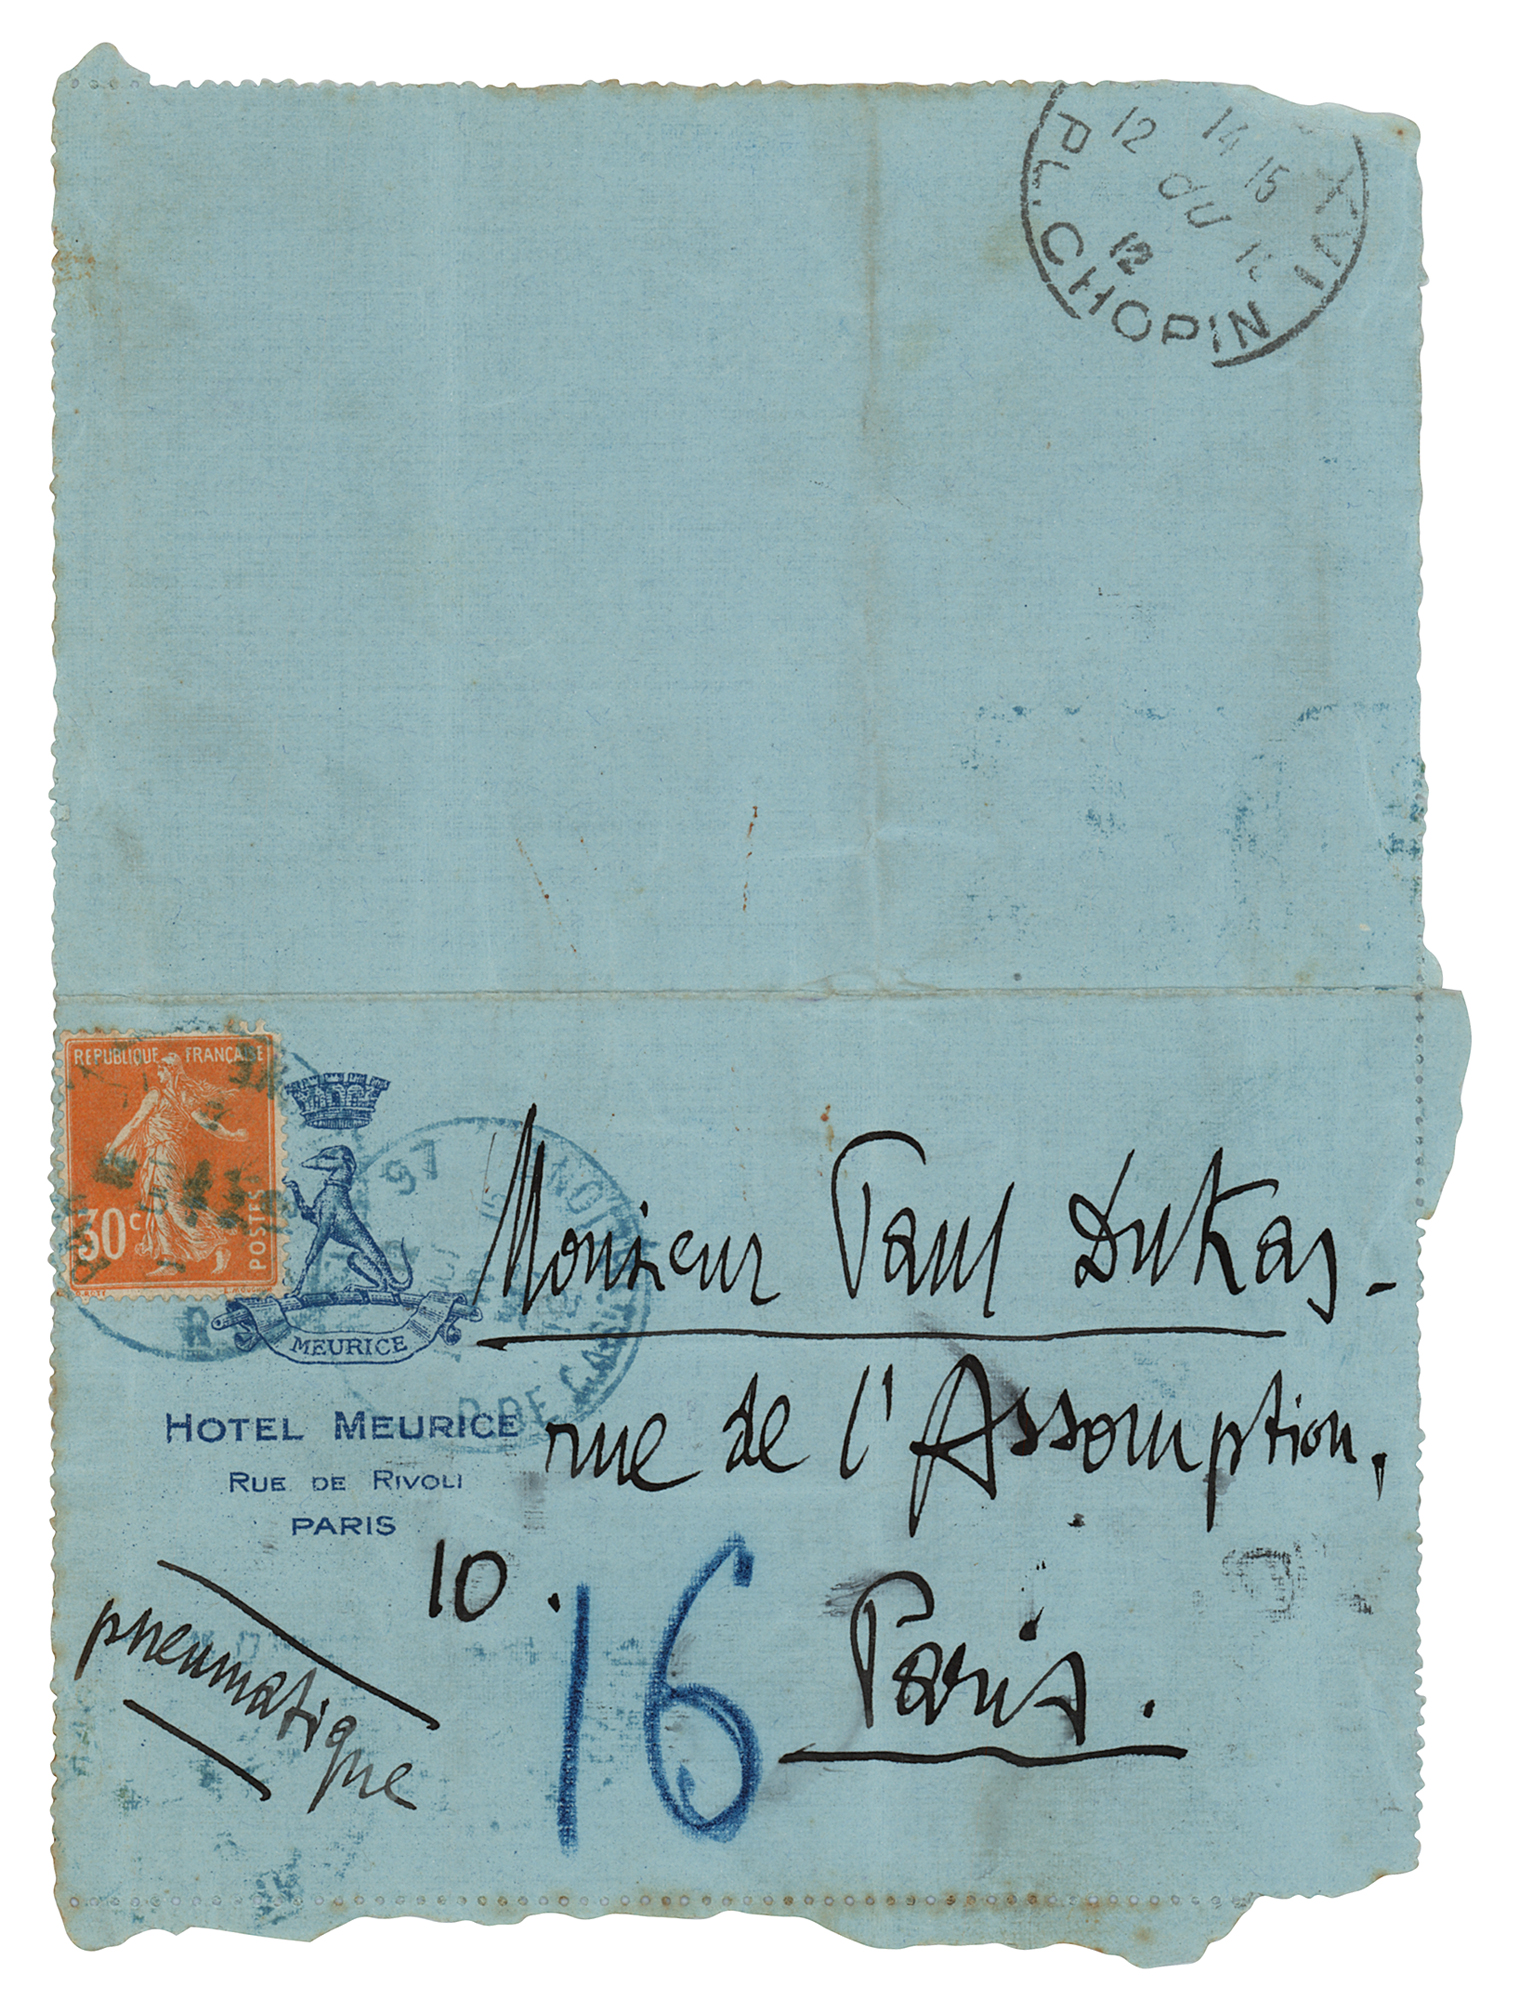 12 14 15
DU
12
PL. CHOPIN XVI
REPUBLIQUE FRANÇAISE
30 c
POSTES
97
MEURICE
R. DE CAST
Monsieur Paul Dukas -
HOTEL MEURICE
rue de l'Assomption.
RUE DE RIVOLI
PARIS
10.
16
Paris.
pneumatique